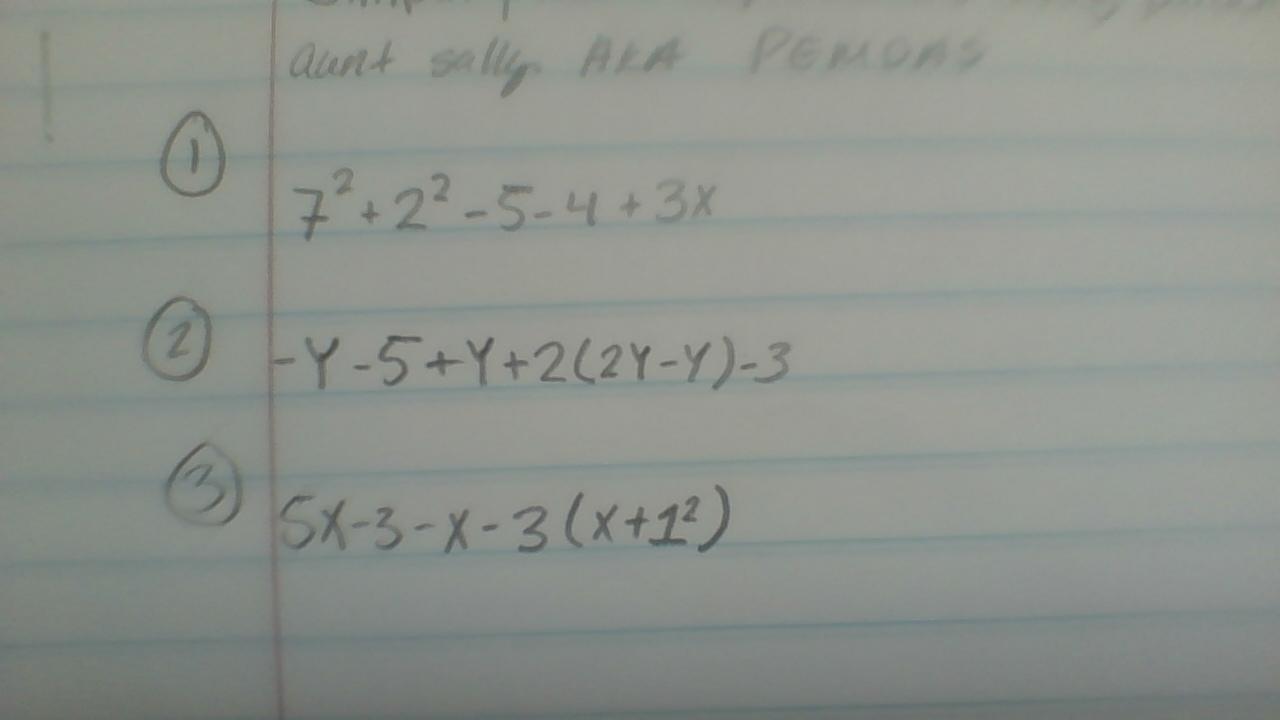 aunt sally. AKA PEMDAS
① 7² + 2² - 5 - 4 + 3x
② -Y - 5 + Y + 2(2Y - Y) - 3
③ 5x - 3 - x - 3(x + 1²)